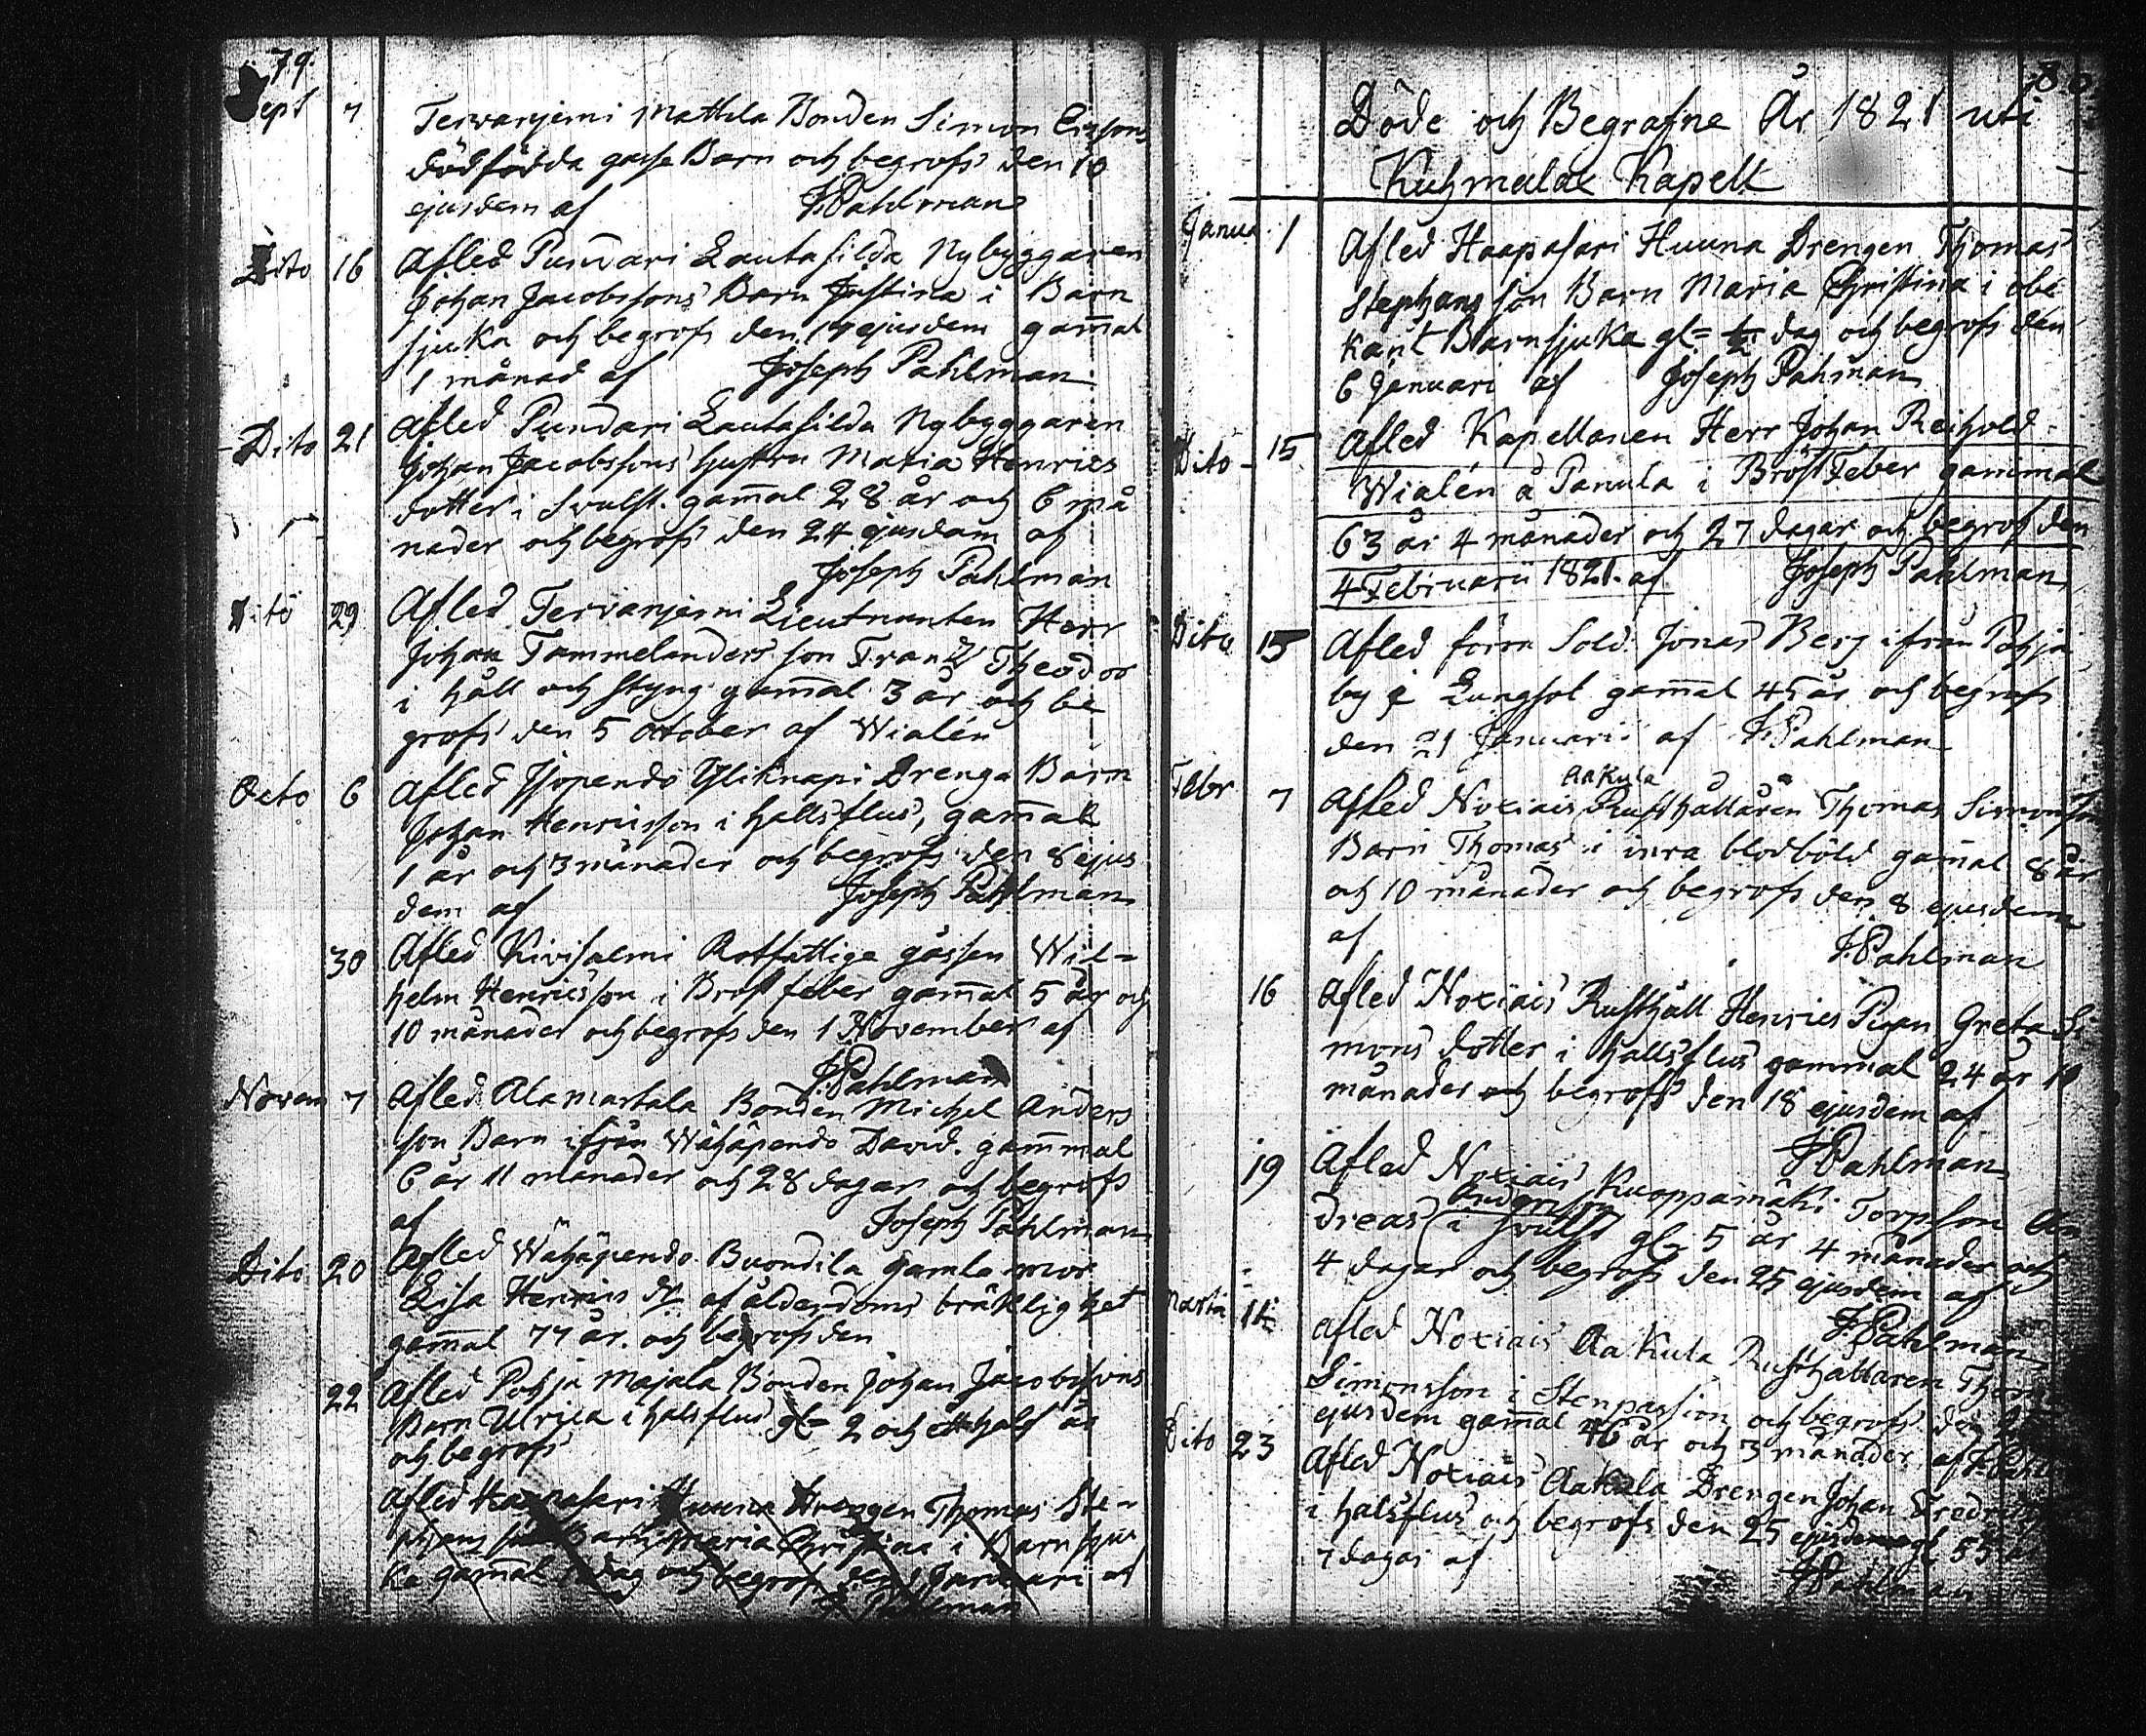 79.
Sept 7 Tervanjemi Mattila Bonden Simon Ersons
dödfödda gosse Barn och begrofs den 10
ejusdem af J. Pahlman
Dito 16 Afled Pundari Lautasilda Nybyggaren
Johan Jacobssons Barn Justina i Barn
sjuka och begrofs den 17 ejusdem gam̄al
1 månad af Joseph Pahlman
Dito 21 Afled Pundari Lautasilda Nybyggaren
Johan Jacobssons hustru Maria Henrics
dotter i Svulst. gam̄al 28 år och 6 må
nader och begrofs den 24 ejusdem af
Joseph Pahlman
Dito 29 Afled Tervanjemi Lieutnanten Herr
Johan Tammelanders son Franz Theodor
i håll och styng gam̄al 3 år och be
grofs den 5 october af Wialén
Octo 6 Afled Isopendo Yliknapi Drenga Barn
Johan Henricsson i halsflus, gam̄al
1 år och 3 månader och begrofs den 8 ejus
dem af Joseph Pahlman
30 Afled Kivisalmi Rotfattige gossen Wil=
helm Henricsson i Bröst feber gam̄al 5 år och
10 månader och begrofs den 1 November af
J. Pahlman
Novem 7 Afled Alamartala Bonden Michel Anders
son Barn ifrån Wähäpendo David. gam̄mal
6 år 11 månader och 28 dagar och begrofs
af Joseph Pahlman
Dito 20 Afled Wähäpendo Buondila gamla mor
Lisa Henrics dr af ålderdoms bräklighet
gam̄al 77 år. och begrofs den
22 Afled Pohja Majala Bonden Johan Jacobssons
Barn Ulrica i halsflus gl= 2 och ett half år
och begrofs
Afled Haapasari Huuna Drengen Thomas Ste-
phans son Barn Maria Christina i Barn sju
ka gam̄al dag och begrofs den Januari af
J. Pahlman
80
Döde och Begrafne År 1821 uti
Kuhmalax Kapell
Janua. 1 Afled Haapasari Huuna Drengen Thomas
Stephans son Barn Maria Christina i obe
kant Barnsjuka gl= ½ dag och begrofs den
6 Januari af Joseph Pahlman
Dito - 15 Afled Kapellanen Herr Johan Reihold
Wialén å Panula i Bröst Feber gammal
63 år 4 månader och 27 dagar och begrofs den
4 Februarii 1821. af Joseph Pahlman
Dito 15 Afled förra Sold. Jonas Berg ifrån Pohja
by i Lungsot gam̄al 45 år och begrofs
den 21 Januarii af J. Pahlman
Aakula
Febr 7 Afled Noxiais Rusthållaren Thomas Simonsson
Barn Thomas i inra blodböld gam̄al 8 år
och 10 månader och begrofs den 8 ejusdem
af J. Pahlman
16 Afled Noxiais Rusthåll Henrics Pigan Greta Si
mons dotter i halsflus gammal 24 år 10
månader och begrofs den 18 ejusdem af
J. Pahlman
19 Afled Noxiais Kuoppamäki Torpson An
Anderson
dreas i svulst gl= 5 år 4 månader och
4 dagar och begrofs den 25 ejusdem af
J. Pahlman
Martii 14 Afled Noxiais Aakula Rusthållaren Thom
Simonsson i Stenpassion och begrofs den 25
ejusdem gam̄al 46 år och 3 månader af J. Pahl
Dito 23 Afled Noxiais Aakula Drengen Johan Fredrics
i halsflus och begrofs den 25 ejusdem gl 55 år
7 dagar af J. Pahlman